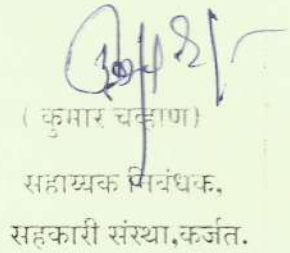 ( कुमार चव्हाण)
सहाय्यक निबंधक,
सहकारी संस्था,कर्जत.